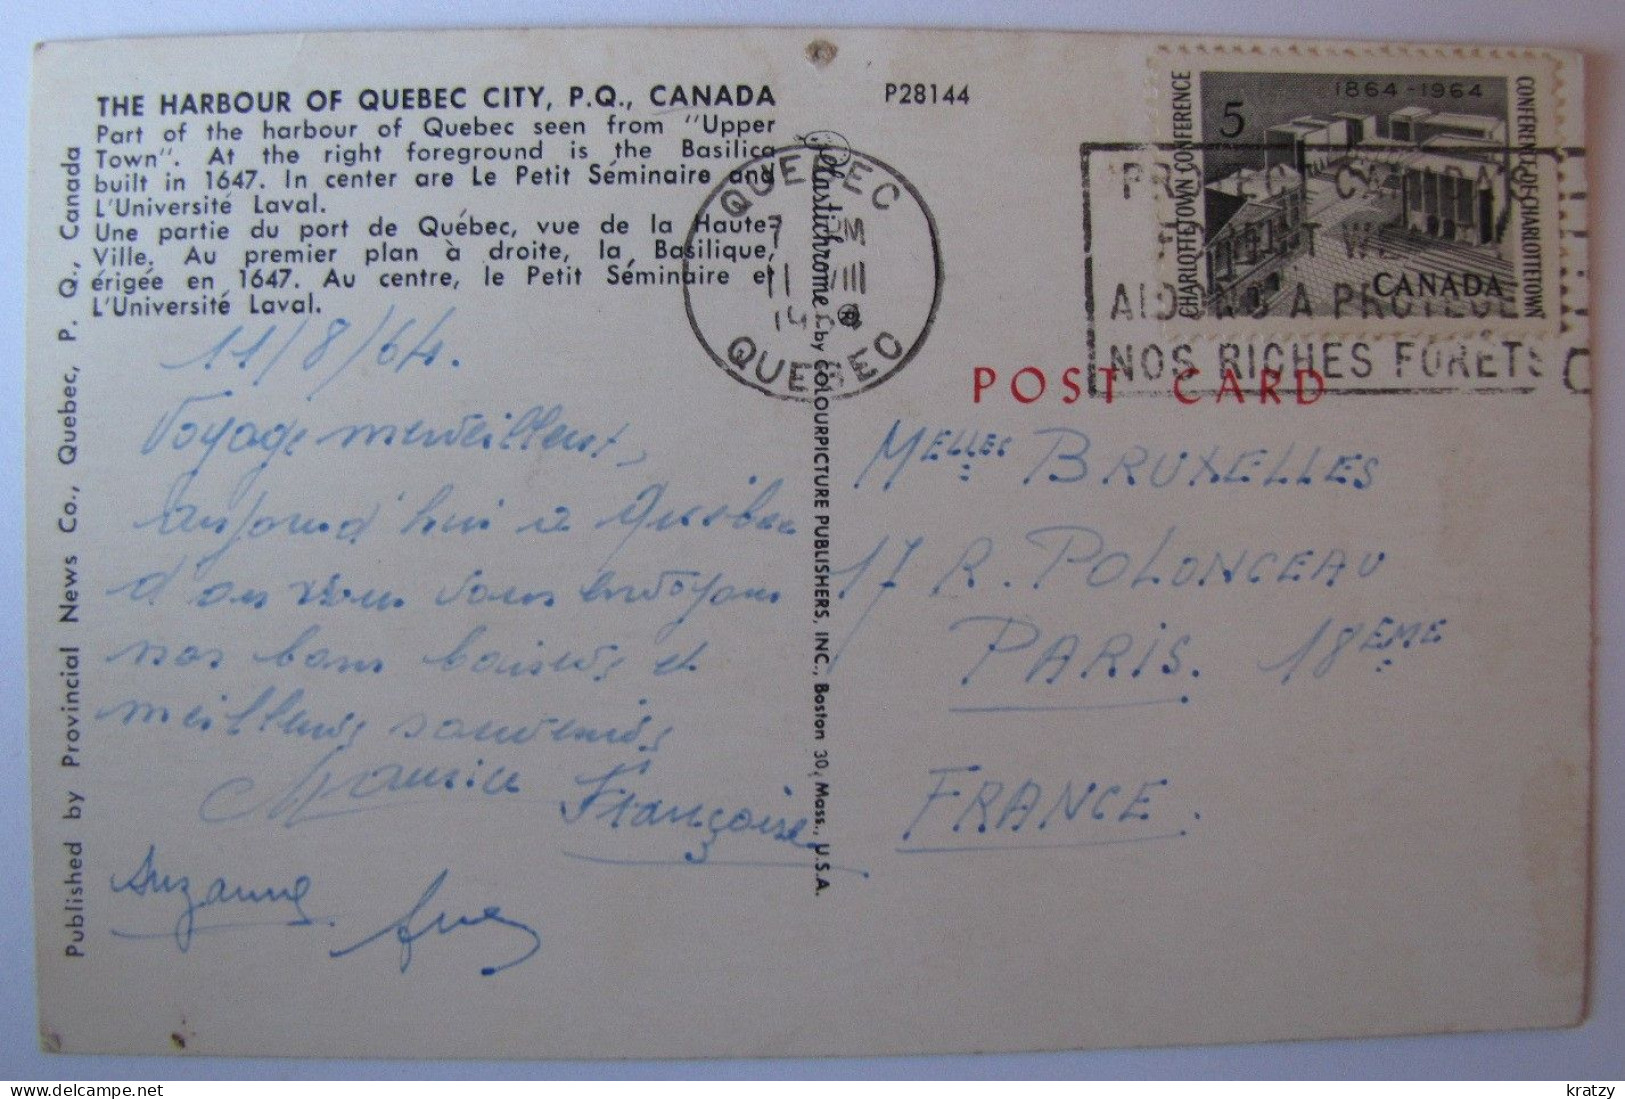 THE HARBOUR OF QUEBEC CITY, P.Q., CANADA
Part of the harbour of Quebec seen from "Upper
Town". At the right foreground is the Basilica
built in 1647. In center are Le Petit Séminaire and
L'Université Laval.
Une partie du port de Québec, vue de la Haute-
Ville. Au premier plan à droite, la Basilique,
érigée en 1647. Au centre, le Petit Séminaire et
L'Université Laval.
11/8/64.
Voyage merveilleux,
aujourd'hui à Québec
d'où nous vous envoyons
nos bons baisers et
meilleurs souvenirs
Maurice Françoise
Suzanne
Published by Provincial News Co., Quebec, P. Q., Canada
Plastichrome ® by COLOURPICTURE PUBLISHERS, INC., Boston 30, Mass., U.S.A.
P28144
QUEBEC
PM
11 VIII
QUEBEC
1864-1964
5
CHARLOTTETOWN CONFERENCE
CONFÉRENCE DE CHARLOTTETOWN
CANADA
PROTEGE
NOS RICHES FORETS
POST CARD
MELLES BRUXELLES
17 R. POLONCEAU
PARIS. 18EME
FRANCE.
kratzy